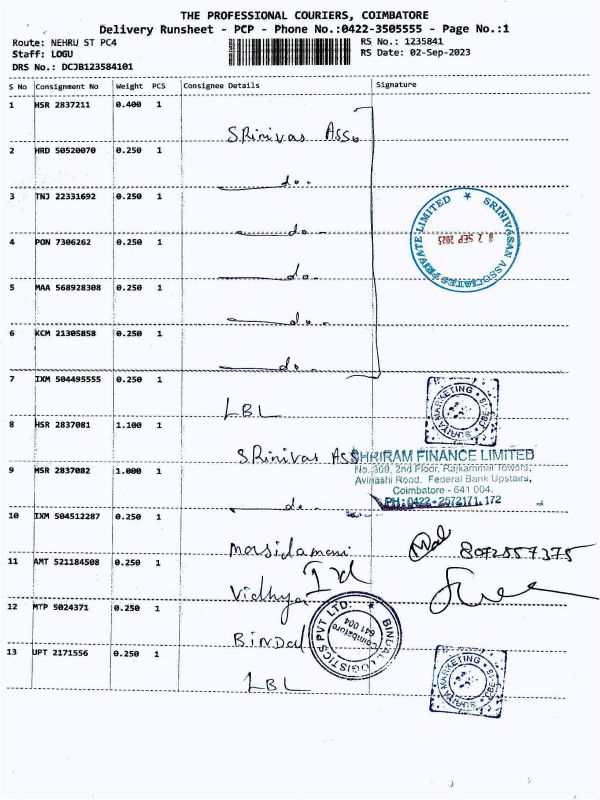 THE PROFESSIONAL COURIERS, COIMBATORE
Delivery Runsheet - PCP - Phone No.:0422-3505555 - Page No.:1
Route: NEHRU ST PC4 RS No.: 1235841
Staff: LOGU RS Date: 02-Sep-2023
DRS No.: DCJB123584101
S No Consignment No Weight PCS Consignee Details Signature
1 HSR 2837211 0.400 1
SRinivas Asso
2 HRD 50520070 0.250 1
do.
3 TNJ 22331692 0.250 1
SRINIVASAN ASSOCIATES PRIVATE LIMITED
do.
4 PON 7306262 0.250 1
02 SEP 2023
do.
5 MAA 568928308 0.250 1
do.
6 KCM 21305858 0.250 1
do.
7 IXM 504495555 0.250 1
LBL
SURIYA MARKETING
8 HSR 2837081 1.100 1
SRinivas ASS
SHRIRAM FINANCE LIMITED
No. 309, 2nd Floor, Rajkammal Towers,
9 HSR 2837082 1.000 1
Avinashi Road, Federal Bank Upstairs,
Coimbatore - 641 004.
PH: 0422 - 2572171, 172
do.
10 IXM 504512287 0.250 1
8072557375
11 AMT 521184508 0.250 1
Vidhya
12 MTP 5024371 0.250 1
BINDAL LOGISTICS PVT LTD.
Coimbatore
641 004
BINDAL
13 UPT 2171556 0.250 1
LBL
SURIYA MARKETING